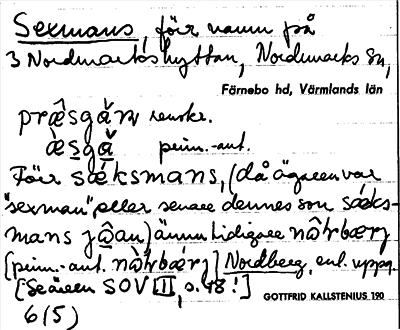 Sexmans, förr namn på
3 Nordmarkshyttan, Nordmarks sn,
Färnebo hd, Värmlands län
præ̂sgǻrn renskr.
æ̀sgǎ prim.-ant.
Förr sæksmans, (då ägaren var
"sexman" eller senare dennes son sæks-
mans jâan) ännu tidigare nɷ̂rbærj
[prim.-ant. nɷ̀rbærj] Nordberg, enl. uppg.
[Se även SOV III, s. 48!]
GOTTFRID KALLSTENIUS 190
6(5)